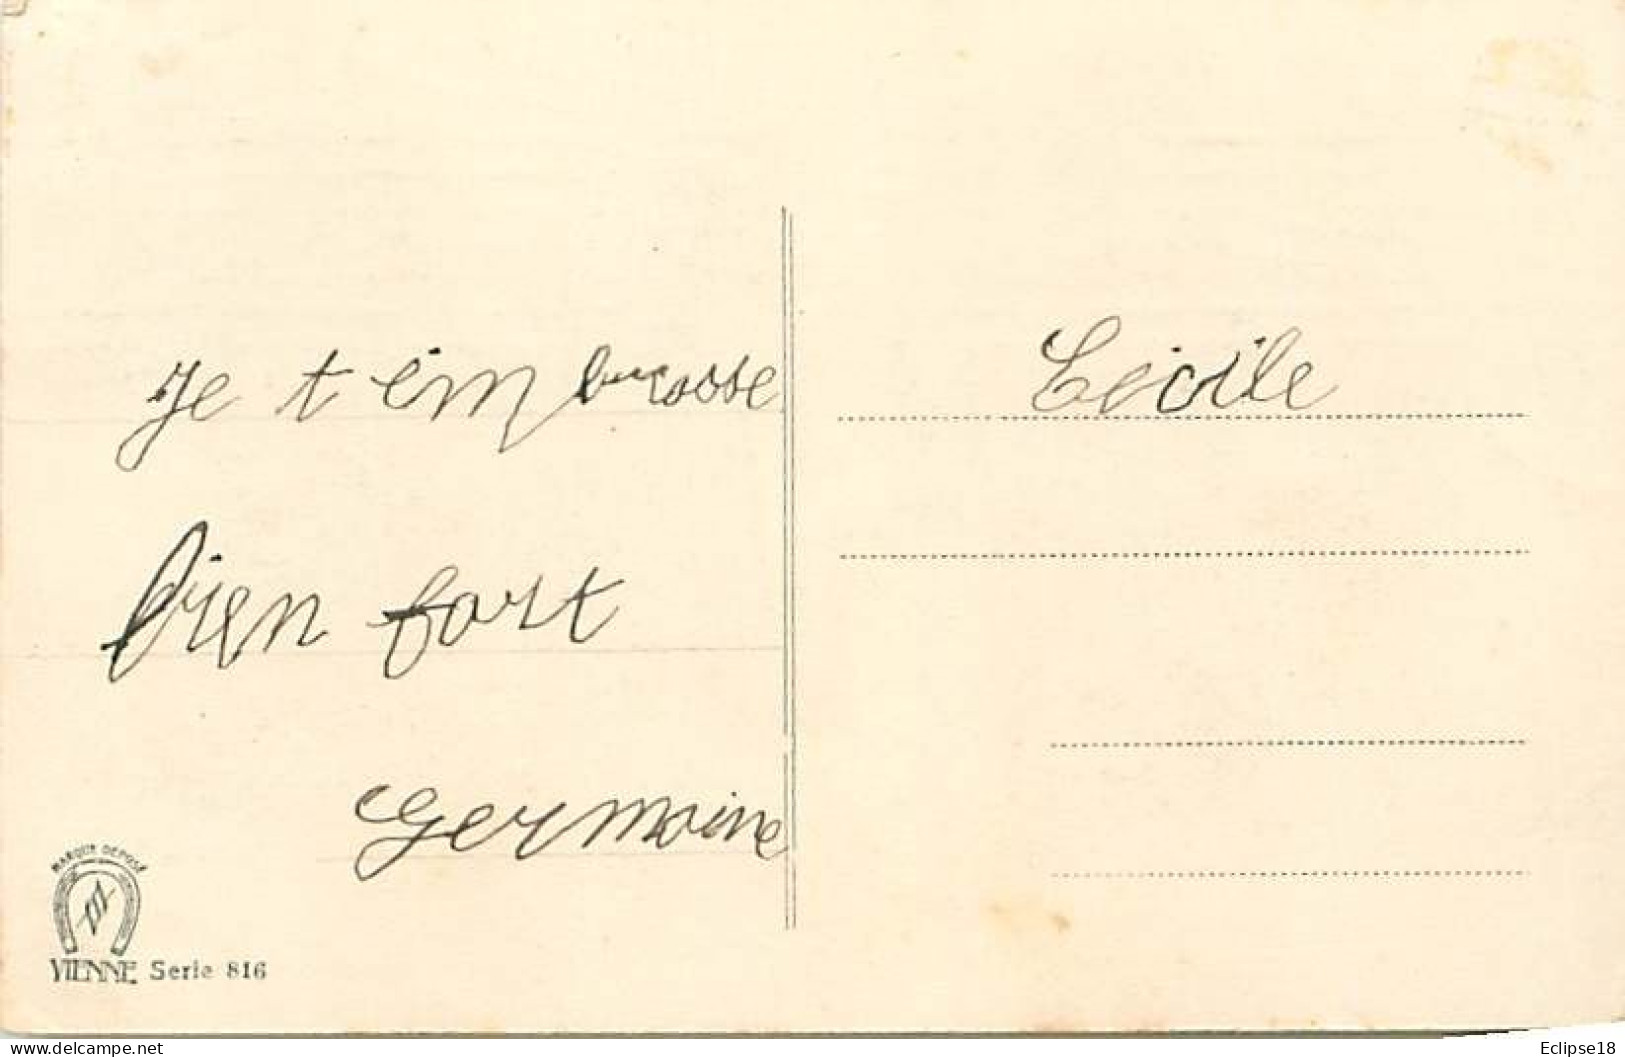 Je t'embrasse
bien fort
Germaine
Cécile
MARQUE DÉPOSÉ
VIENNE Serie 816
www.delcampe.net
Eclipse18